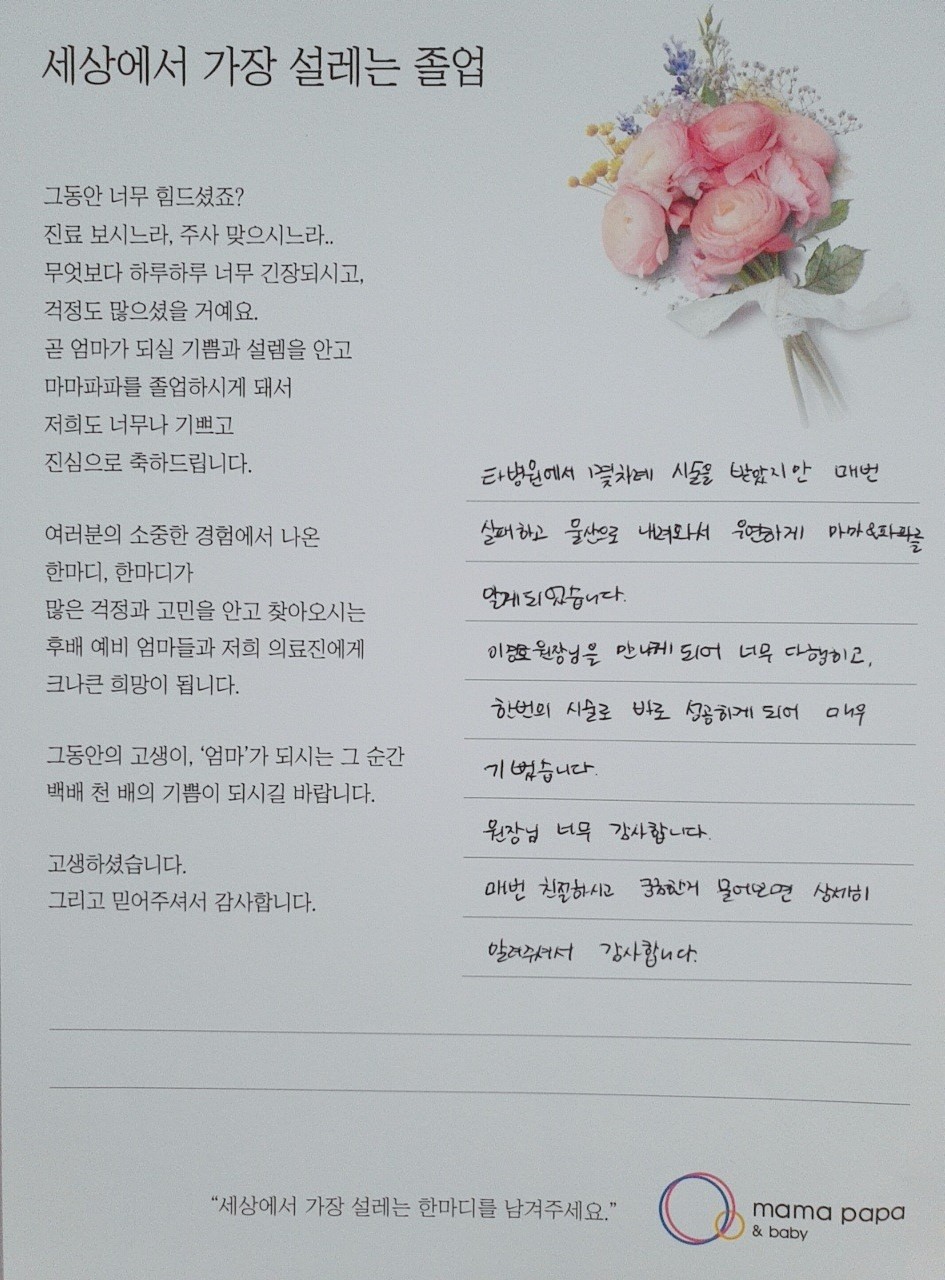 세상에서 가장 설레는 졸업
그동안 너무 힘드셨죠?
진료 보시느라, 주사 맞으시느라..
무엇보다 하루하루 너무 긴장되시고,
걱정도 많으셨을 거예요.
곧 엄마가 되실 기쁨과 설렘을 안고
마마파파를 졸업하시게 돼서
저희도 너무나 기쁘고
진심으로 축하드립니다.
여러분의 소중한 경험에서 나온
한마디, 한마디가
많은 걱정과 고민을 안고 찾아오시는
후배 예비 엄마들과 저희 의료진에게
크나큰 희망이 됩니다.
그동안의 고생이, ‘엄마’가 되시는 그 순간
백배 천 배의 기쁨이 되시길 바랍니다.
고생하셨습니다.
그리고 믿어주셔서 감사합니다.
타병원에서 시술을 받았지만 매번
실패하고 울산으로 내려와서 우연하게 마마&파파를
알게되었습니다.
원장님을 만나게 되어 너무 다행이고,
한번의 시술로 바로 성공하게 되어 매우
기뻤습니다.
원장님 너무 감사합니다.
매번 친절하시고 궁금한거 물어보면 상세히
알려주셔서 감사합니다.
“세상에서 가장 설레는 한마디를 남겨주세요.”
mama papa
& baby